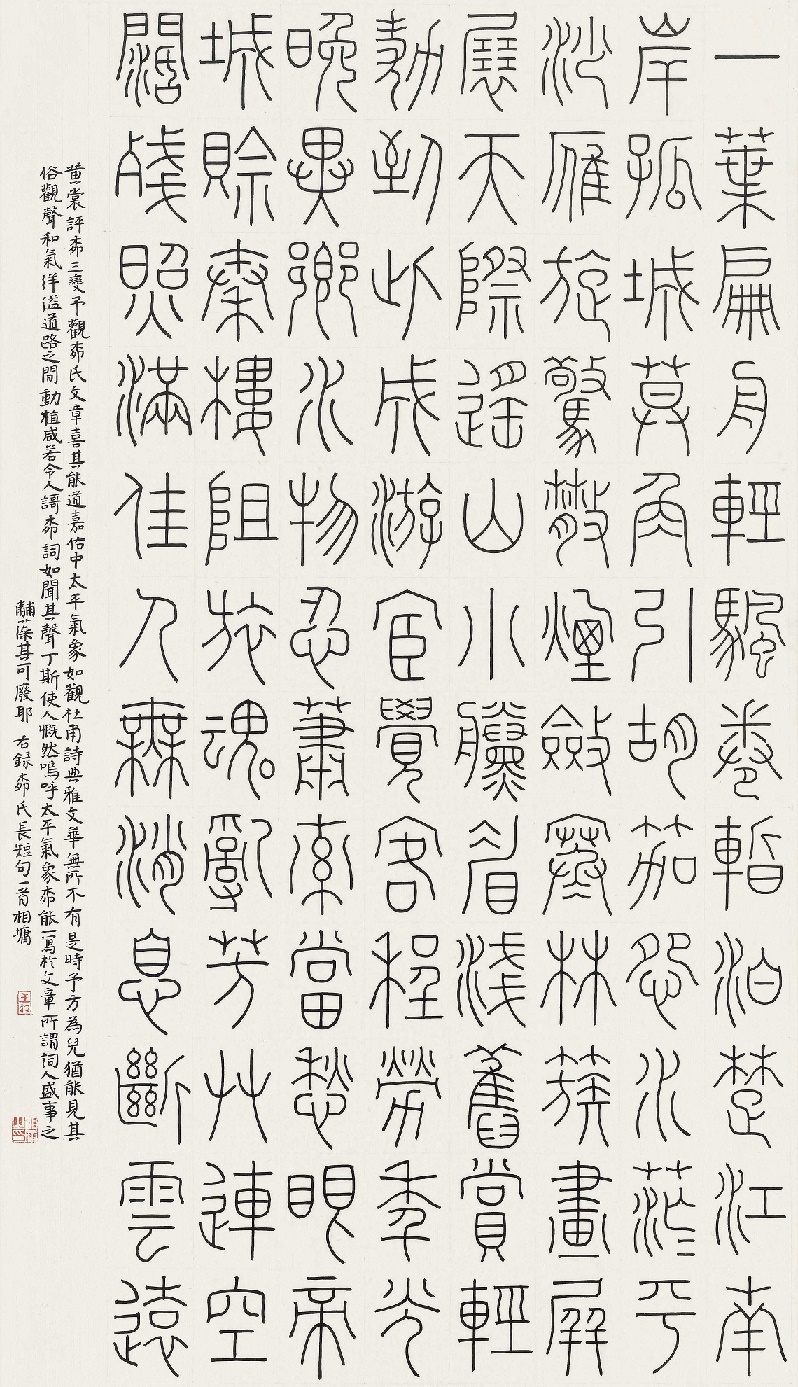 一葉扁舟輕颿卷暫泊楚江南
岸孤城莫角引胡笳怨水茫〻平
沙雁旋驚散煙斂寒林簇畫屏
展天際遙山小黱眉淺舊賞輕
到此成游宦覺客程勞年光
晚異鄉水物忍蕭索當愁眼帝
城賒秦樓阻旅魂亂芳艸連空
闊殘照滿佳人無消息斷雲遠
黃裳評桺三變予觀桺氏文章喜其能道嘉祐中太平氣象如觀杜甫詩典雅文華無所不有是時予方為兒猶能見其
俗觀聲和氣洋溢道路之間動植咸若令人謌桺詞如聞其聲丁斯使人慨然嗚呼太平氣象桺能一寫於文章所謂詞人盛事之
黼藻其可廢耶 右錄桺氏長短句一首相